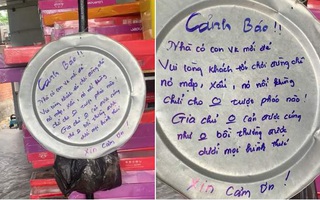 Canh Báo !!
Nhà có con vẹ mới đẻ
Vui lòng khách tới chơi đừng chê
nó mập, xấu, nó nổi khùng
chửi cho O trượt phát nào!
Gia chủ O can được cũng
như O bồi thường dưới
dưới mọi hình thức
Xin Cảm Ơn !
Canh Báo !!
Nhà có con vẹ mới đẻ
Vui lòng khách tới chơi đừng chê
nó mập, xấu, nó nổi khùng
chửi cho O trượt phát nào!
Gia chủ O can được cũng
như O bồi thường dưới
dưới mọi hình thức
Xin Cảm Ơn !